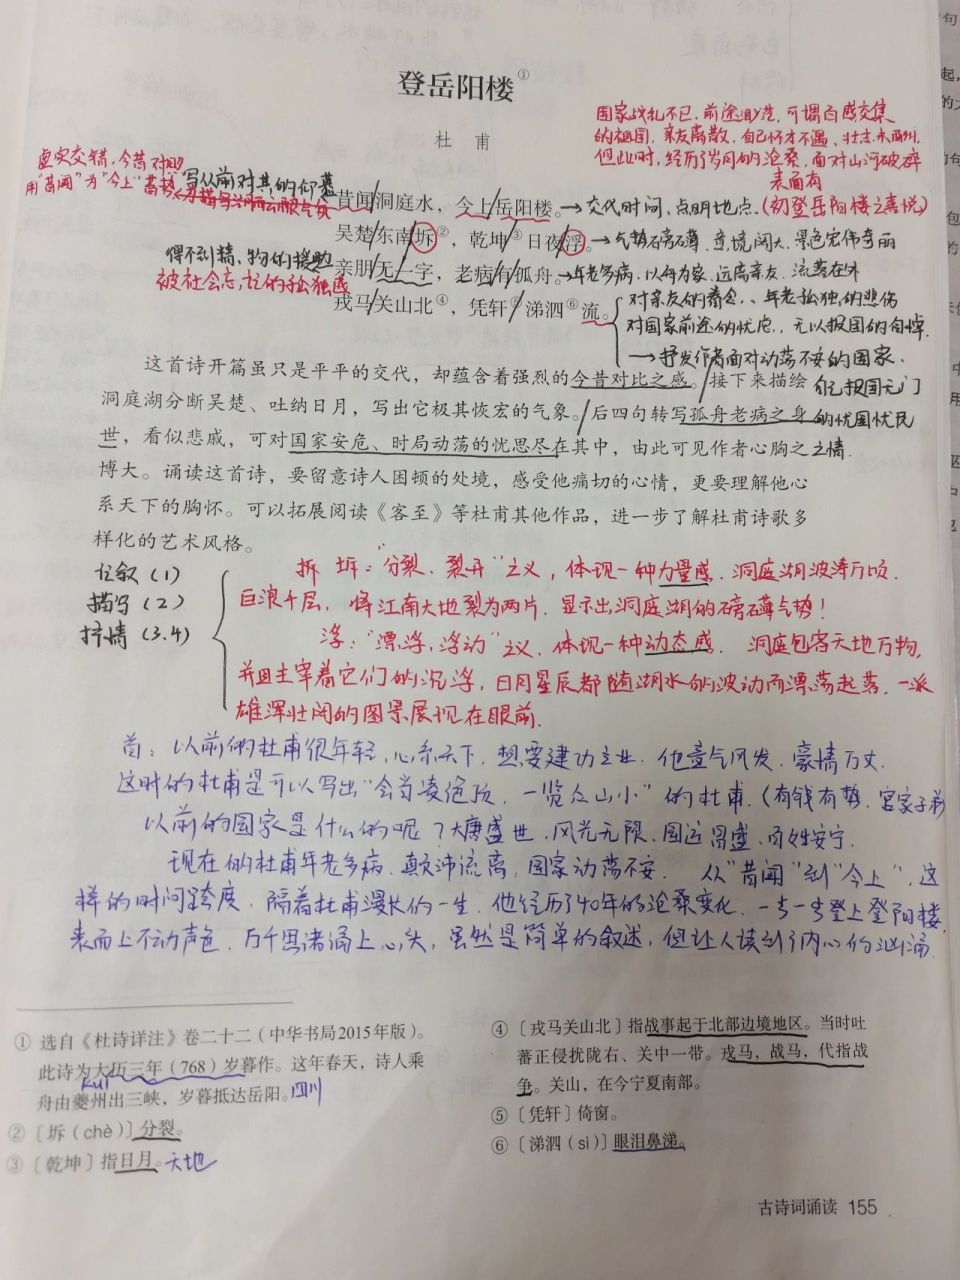 登岳阳楼①
杜 甫
国家战乱不已，前途渺茫，可谓百感交集
的祖国，亲友离散，自己怀才不遇，壮志未酬，
但此时，经历了岁月的沧桑，面对山河破碎
表面有
虚实交错，今昔对比
用"昔闻"为"今上"蓄势
写从前对其的仰慕
昔闻洞庭水，今上岳阳楼。→交代时间、点明地点。(初登岳阳楼之喜悦)
吴楚东南坼②，乾坤③日夜浮。→气势磅礴，意境阔大，景色宏伟奇丽
得不到精、物的援助
亲朋无一字，老病有孤舟。→年老多病，以舟为家，远离亲友，流落在外
被社会忘，忆的孤独感
戎马关山北④，凭轩⑤涕泗⑥流。
对亲友的眷念、年老孤独的悲伤
对国家前途的忧虑、无以报国的自悼
→抒发作者面对动荡不安的国家，
自己报国无门
的忧国忧民
之情
这首诗开篇虽只是平平的交代，却蕴含着强烈的今昔对比之感。接下来描绘
洞庭湖分断吴楚、吐纳日月，写出它极其恢宏的气象。后四句转写孤舟老病之身
世，看似悲戚，可对国家安危、时局动荡的忧思尽在其中，由此可见作者心胸之
博大。诵读这首诗，要留意诗人困顿的处境，感受他痛切的心情，更要理解他心
系天下的胸怀。可以拓展阅读《客至》等杜甫其他作品，进一步了解杜甫诗歌多
样化的艺术风格。
记叙(1)
描写(2)
抒情(3.4)
拆 坼："分裂、裂开"之义，体现一种力量感，洞庭湖波涛万顷，
巨浪千层，将江南大地裂为两片，显示出洞庭湖的磅礴气势！
浮："漂浮，浮动"义，体现一种动态感， 洞庭包容天地万物，
并且主宰着它们的沉浮，日月星辰都随湖水的波动而漂荡起落，一派
雄浑壮阔的图景展现在眼前.
首：以前的杜甫很年轻，心系天下，想要建功立业，他意气风发，豪情万丈.
这时的杜甫是可以写出"会当凌绝顶，一览众山小"的杜甫.(有钱有势，官家子弟)
以前的国家是什么的呢？大唐盛世，风光无限，国运昌盛，百姓安宁.
现在的杜甫年老多病，颠沛流离，国家动荡不安. 从"昔闻"到"今上"，这
样的时间跨度，隔着杜甫漫长的一生，他经历了40年的沧桑变化，一步一步登上登阳楼，
表面上不动声色，万千思绪涌上心头，虽然是简单的叙述，但让人读到了内心的汹涌.
① 选自《杜诗详注》卷二十二（中华书局2015年版）。
此诗为大历三年（768）岁暮作。这年春天，诗人乘
kuí
舟由夔州出三峡，岁暮抵达岳阳。四川
② 〔坼（chè）〕分裂。
③ 〔乾坤〕指日月。天地
④ 〔戎马关山北〕指战事起于北部边境地区。当时吐
蕃正侵扰陇右、关中一带。戎马，战马，代指战
争。关山，在今宁夏南部。
⑤ 〔凭轩〕倚窗。
⑥ 〔涕泗（sì）〕眼泪鼻涕。
古诗词诵读 155